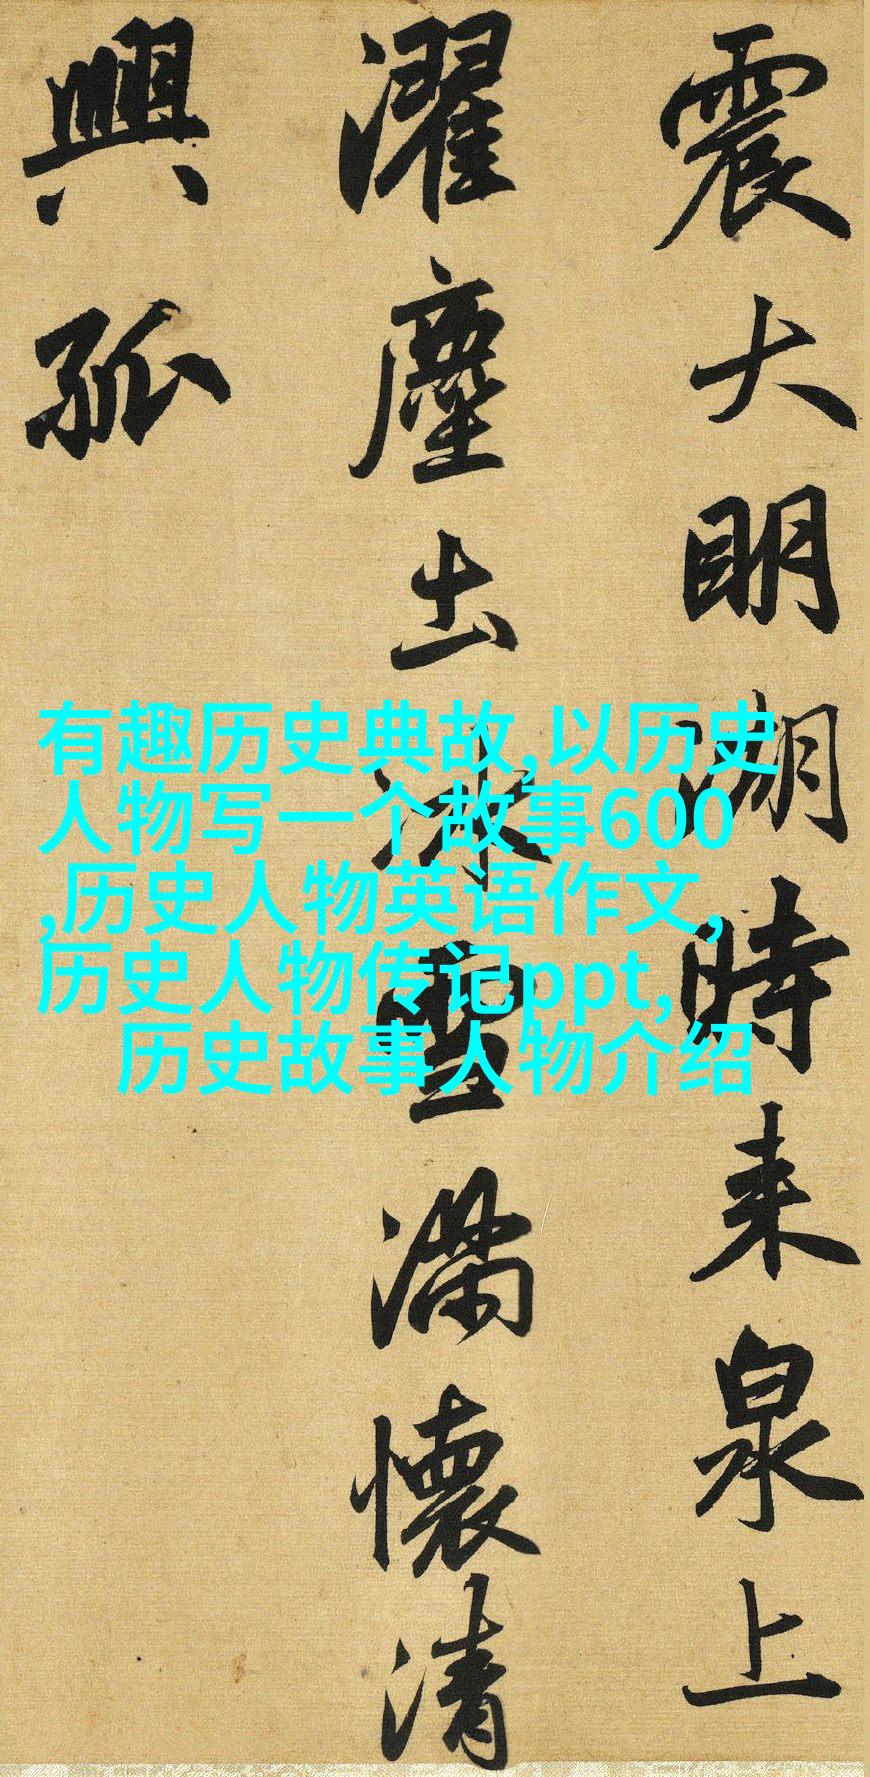 震大明湖時来泉上
濯塵土冰雪滿懷清
興孤
有趣历史典故,以历史
人物写一个故事600
,历史人物英语作文,
历史人物传记ppt,
历史故事人物介绍